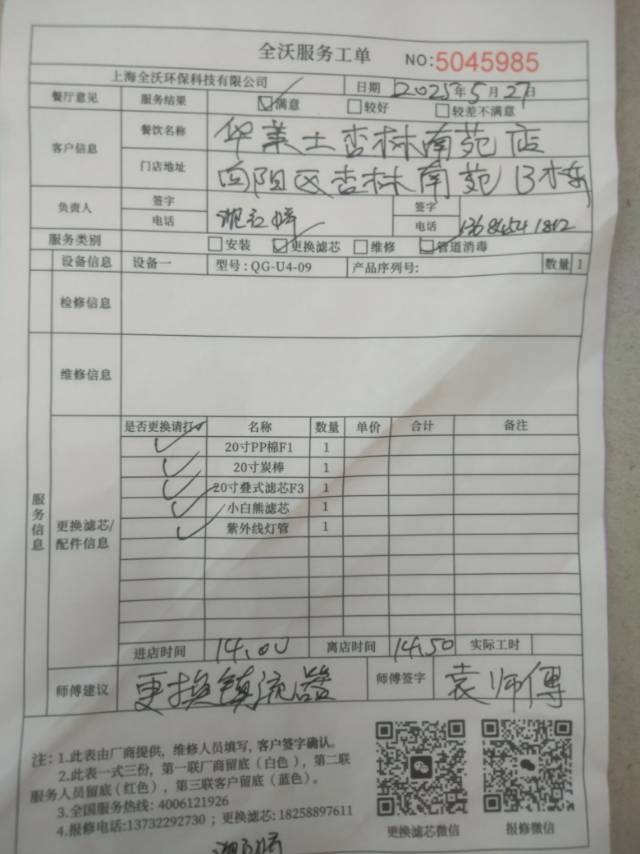 全沃服务工单 NO:5045985
上海全沃环保科技有限公司 日期 2025年5月27日
餐厅意见 服务结果 ☑满意 □较好 □较差不满意
客户信息 餐饮名称 华莱士杏林南苑店
门店地址 向阳区杏林南苑B栋
负责人 签字 签字
电话 电话
服务类别 □安装 ☑更换滤芯 □维修 ☑管道消毒
设备信息 设备一 型号:QG-U4-09 产品序列号: 数量 1
检修信息
维修信息
服务信息
更换滤芯/配件信息
是否更换请打✓ 名称 数量 单价 合计 备注
✓ 20寸PP棉F1 1
✓ 20寸炭棒 1
✓ 20寸叠式滤芯F3 1
✓ 小白熊滤芯 1
✓ 紫外线灯管 1
进店时间 14:00 离店时间 14:50 实际工时
师傅建议 更换镇流器 师傅签字 袁师傅
注:1.此表由厂商提供,维修人员填写,客户签字确认。
2.此表一式三份,第一联厂商留底(白色),第二联
服务人员留底(红色),第三联客户留底(蓝色)。
3.全国服务热线:4006121926
4.报修电话:13732292730;更换滤芯:18258897611
更换滤芯微信 报修微信